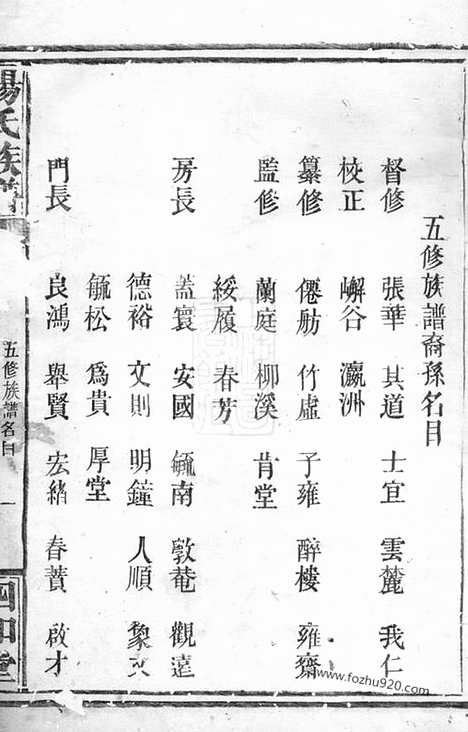 五修族譜裔孫名目
督修 張華 其道 士宜 雲麓 我仁
校正 嶰谷 瀛洲
纂修 僊舫 竹虛 子雍 醉樓 雍齋
監修 蘭庭 柳溪 肯堂
綏履 春芳
房長 蓋寰 安國 毓南 敦菴 觀遠
德裕 文則 明鐘 人順 象文
毓松 為貴 厚堂
門長 良鴻 舉賢 宏緒 春蕡 啟才
楊氏族譜
五修族譜名目 一
四知堂
www.fozhu920.com